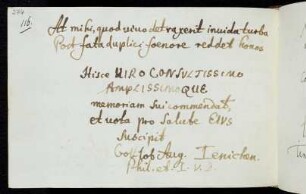 116.
At mihi, quod vivo detraxerit invida turba
Post fata duplici foenore reddet honos
Hisce VIRO CONSULTISSIMO
AMPLISSIMOQUE
memoriam sui commendat,
et vota pro Salute EIUS
Suscipit
Gottlob Aug. Ienichen.
Phil. et I. U. D.